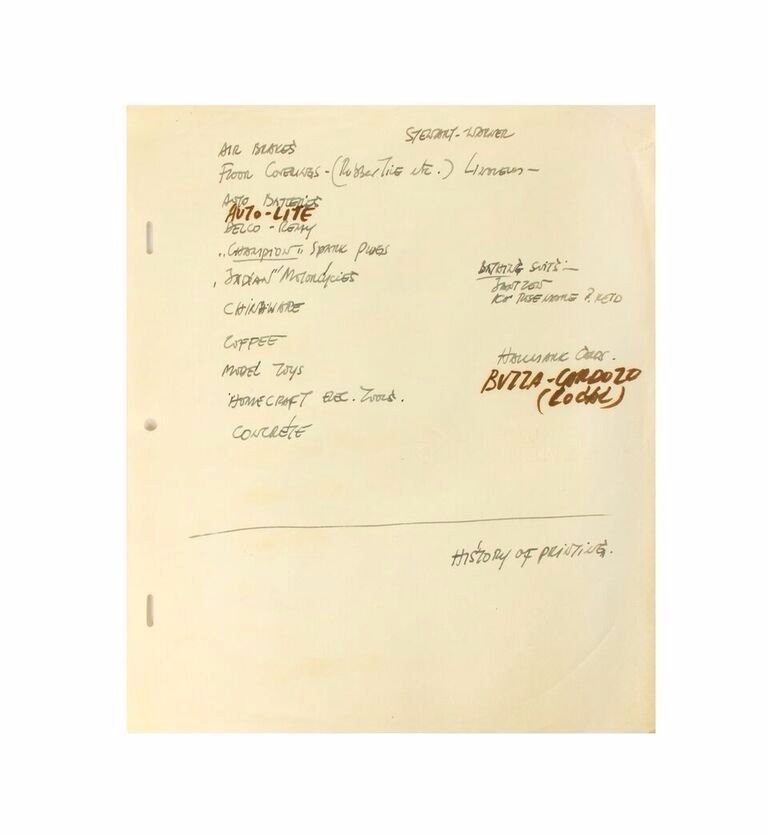 STEWART-WARNER
AIR BRAKES
FLOOR COVERINGS-(RUBBER TILE ETC.) LINOLEUM-
AUTO BATTERIES
AUTO-LITE
DELCO-REMY
"CHAMPION" SPARK PLUGS
"INDIAN" MOTORCYCLES
BATHING SUITS:-
JANTZEN
ROSE MARIE REID
CHINAWARE
COFFEE
HALLMARK CARDS.
MODEL TOYS
BUZZA-CARDOZO
(LOCAL)
HOMECRAFT ELEC. TOOLS.
CONCRETE
HISTORY OF PRINTING.